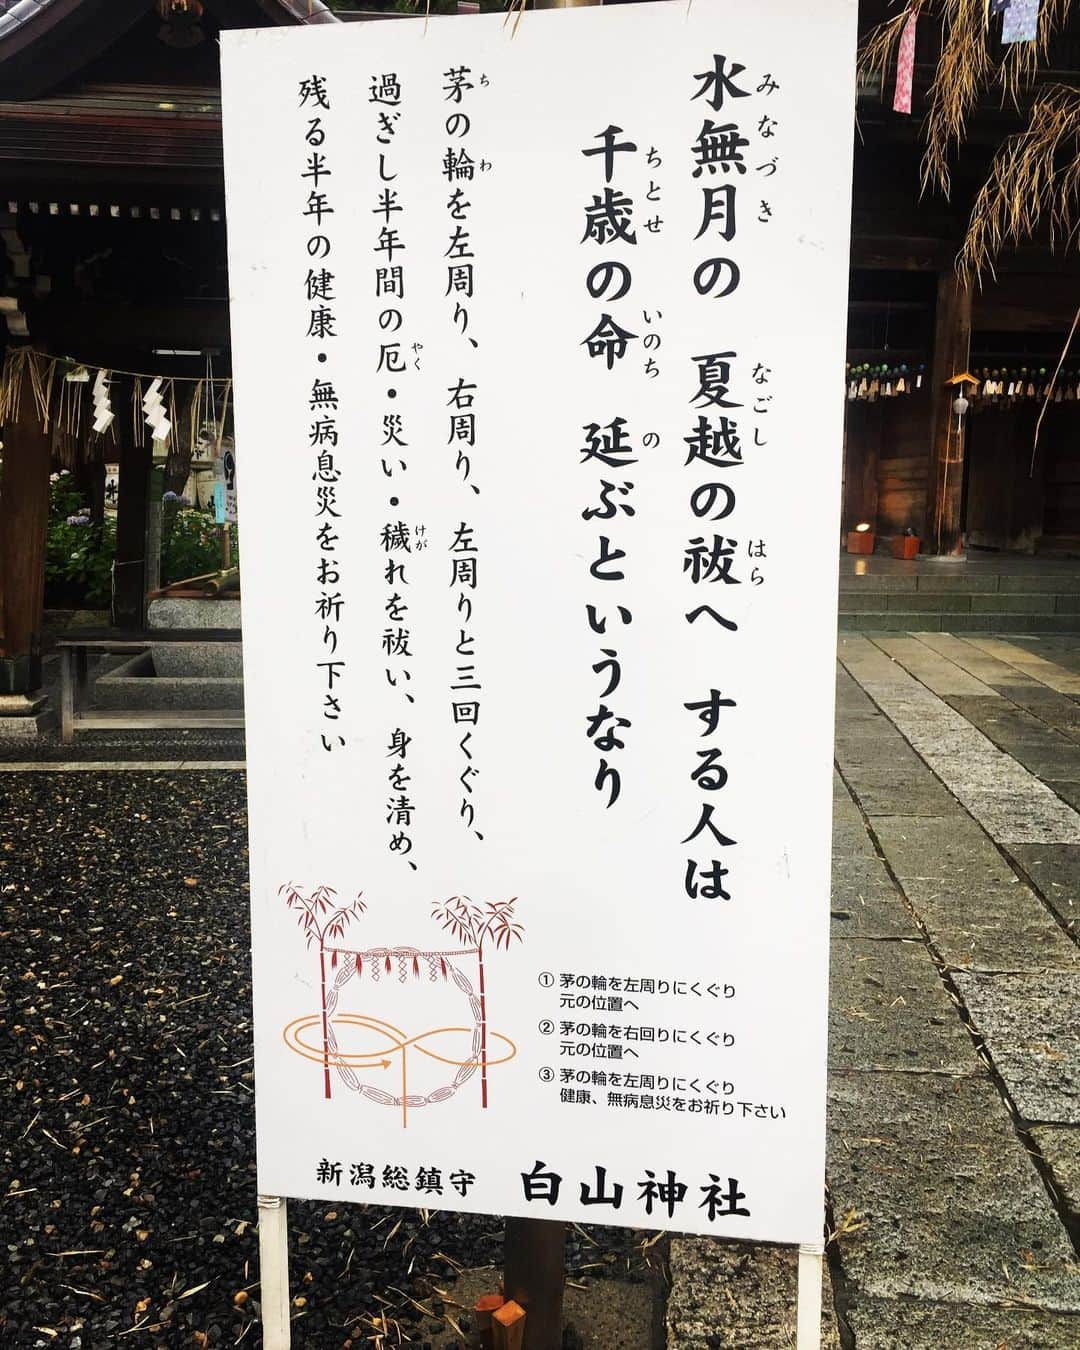 水無月の　夏越の祓へ　する人は
千歳の命　延ぶというなり
茅の輪を左周り、右周り、左周りと三回くぐり、
過ぎし半年間の厄・災い・穢れを祓い、身を清め、
残る半年の健康・無病息災をお祈り下さい
みなづき
なごし
はら
ちとせ
いのち
の
ち
わ
やく
けが
① 茅の輪を左周りにくぐり
元の位置へ
② 茅の輪を右回りにくぐり
元の位置へ
③ 茅の輪を左周りにくぐり
健康、無病息災をお祈り下さい
新潟総鎮守　白山神社